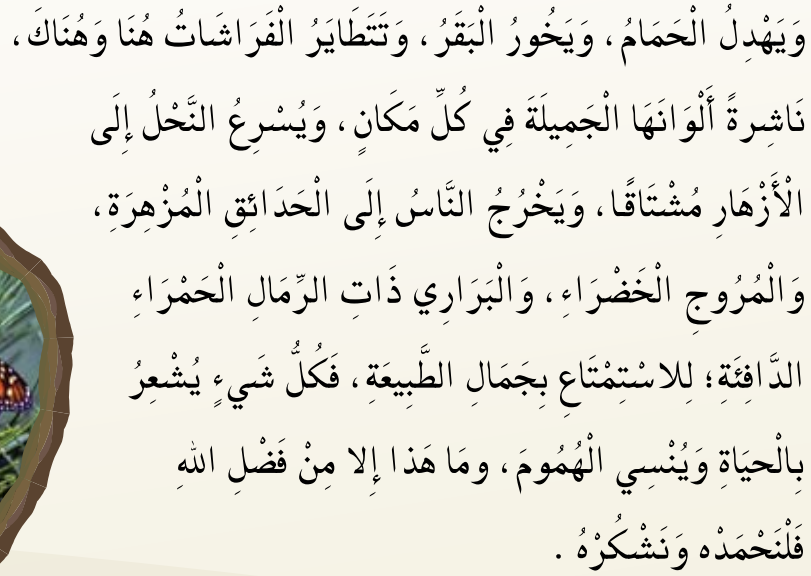 وَيَهْدِلُ الْحَمَامُ، وَيَخُورُ الْبَقَرُ، وَتَتَطَايَرُ الْفَرَاشَاتُ هُنَا وَهُنَاكَ،
نَاشِرةً أَلْوَانَهَا الْجَمِيلَةَ فِي كُلِّ مَكَانٍ، وَيُسْرِعُ النَّحْلُ إِلَى
الْأَزْهَارِ مُشْتَاقًا، وَيَخْرُجُ النَّاسُ إِلَى الْحَدَائِقِ الْمُزْهِرَةِ،
وَالْمُرُوجِ الْخَضْرَاءِ، وَالْبَرَارِي ذَاتِ الرِّمَالِ الْحَمْرَاءِ
الدَّافِئَةِ؛ لِلاسْتِمْتَاعِ بِجَمَالِ الطَّبِيعَةِ، فَكُلُّ شَيءٍ يُشْعِرُ
بِالْحيَاةِ وَيُنْسِي الْهُمُومَ، ومَا هَذا إِلا مِنْ فَضْلِ اللهِ
فَلْنَحْمَدْه وَنَشْكُرْهُ .